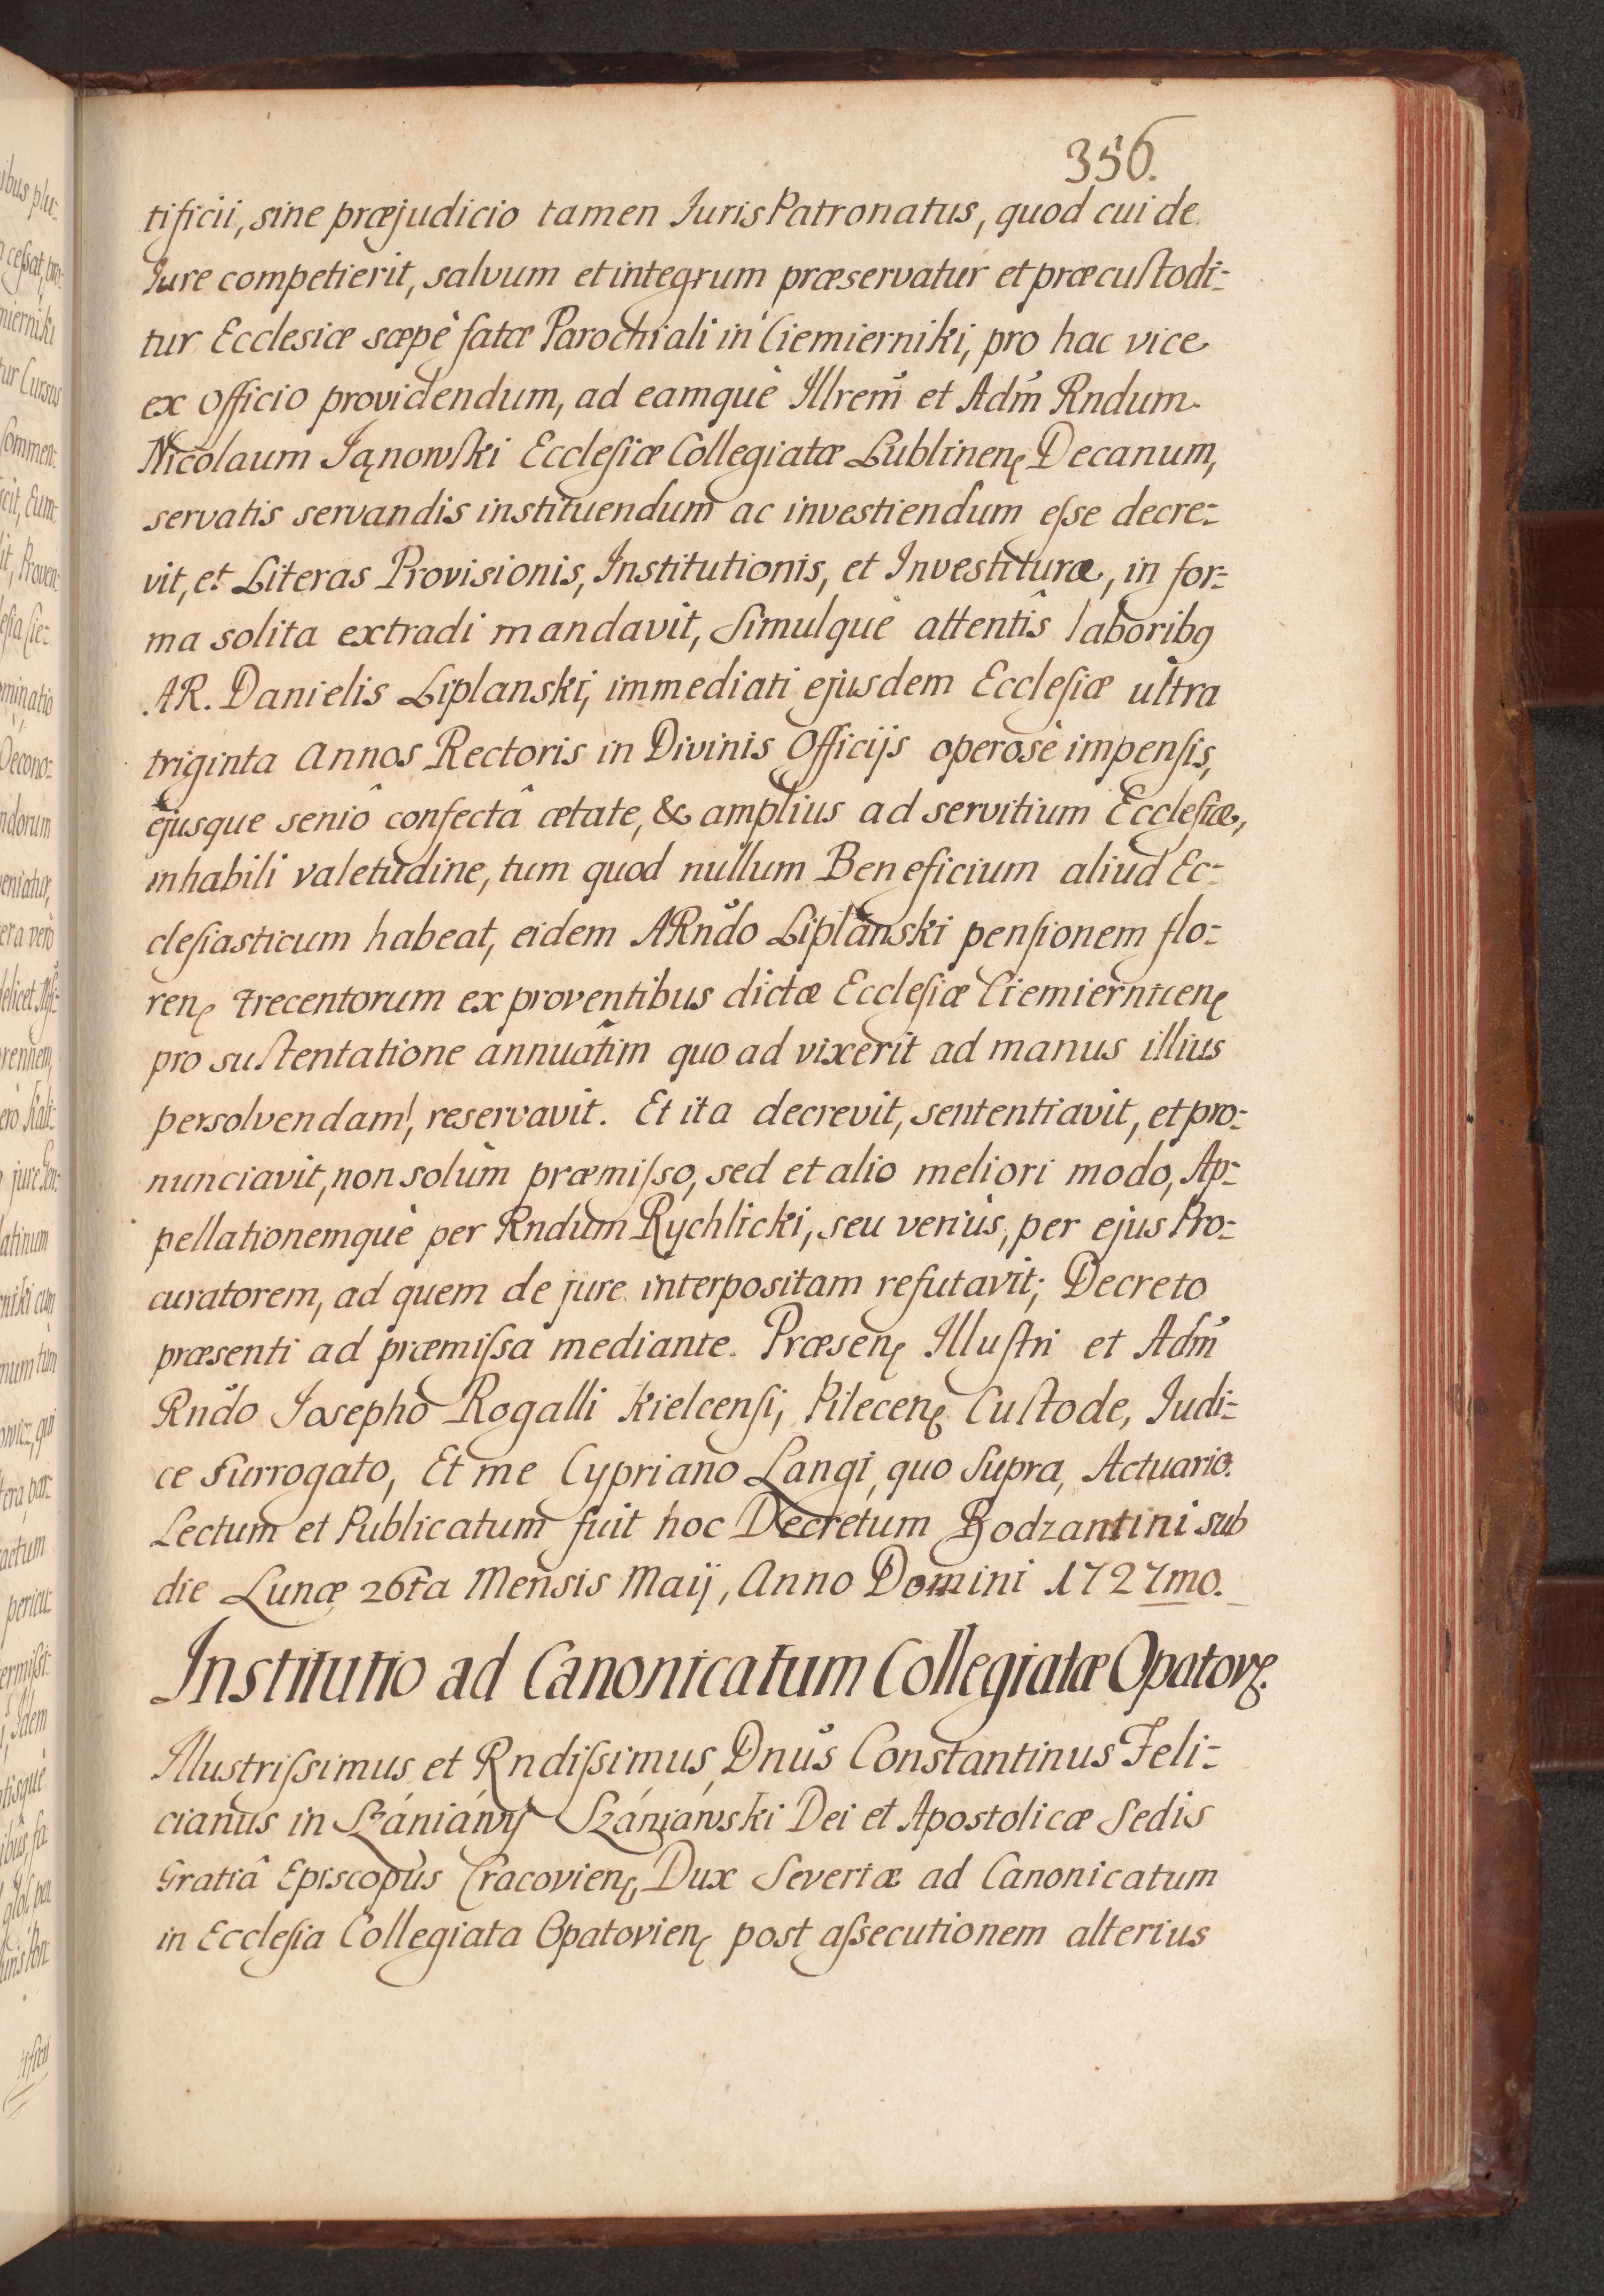 356.
tificii, sine præjudicio tamen Iuris Patronatus, quod cui de
Iure competierit, salvum et integrum præservatur et præcustodi=
tur Ecclesiæ sæpè fatæ Parochiali in Ciemierniki, pro hac vice
ex Officio providendum, ad eamquè Illrem̃ et Adm̃ Rndum
Nicolaum Iąnowski Ecclesiæ Collegiatæ Lublinenȩ Decanum,
servatis servandis instituendum ac investiendum esse decre=
vit, et Literas Provisionis, Institutionis, et Investituræ, in for=
ma solita extradi mandavit, Simulquè attentîs laboribꝯ
AR. Danielis Liplanski, immediati ejusdem Ecclesiæ ultra
triginta Annos Rectoris in Divinis Officijs operosè impensis,
ejusque seniô confectâ ætate, & amplius ad servitium Ecclesiæ,
inhabili valetudine, tum quod nullum Beneficium aliud Ec=
clesiasticum habeat, eidem ARndo Liplanski pensionem flo=
renȩ trecentorum ex proventibus dictæ Ecclesiæ Ciemiernicenȩ
pro sustentatione annuatim quo ad vixerit ad manus illius
persolvendam, reservavit. Et ita decrevit, sententiavit, et pro=
nunciavit, non solùm præmisso, sed et alio meliori modo, Ap=
pellationemquè per Rndum Rychlicki, seu veriùs, per ejus Pro=
curatorem, ad quem de jure interpositam refutavit; Decreto
præsenti ad præmissa mediante. Præsenȩ Illustri et Adm̃
Rndo Iosepho Rogalli Kielcensi, Pilecenȩ Custode, Iudi=
ce Surrogato, Et me Cypriano Langi, quo Supra, Actuario.
Lectum et Publicatum fuit hoc Decretum Bodzantini sub
die Lunæ 26ta Mensis Maij, Anno Domini 1727mo.
Institutio ad Canonicatum Collegiatæ Opatovȩ.
Illustrissimus et Rndissimus Dnus Constantinus Feli=
cianus in Szániáwy Szániáwski Dei et Apostolicæ Sedis
Gratiâ Episcopus Cracovienȩ, Dux Severiæ ad Canonicatum
in Ecclesia Collegiata Opatovienȩ post assecutionem alterius